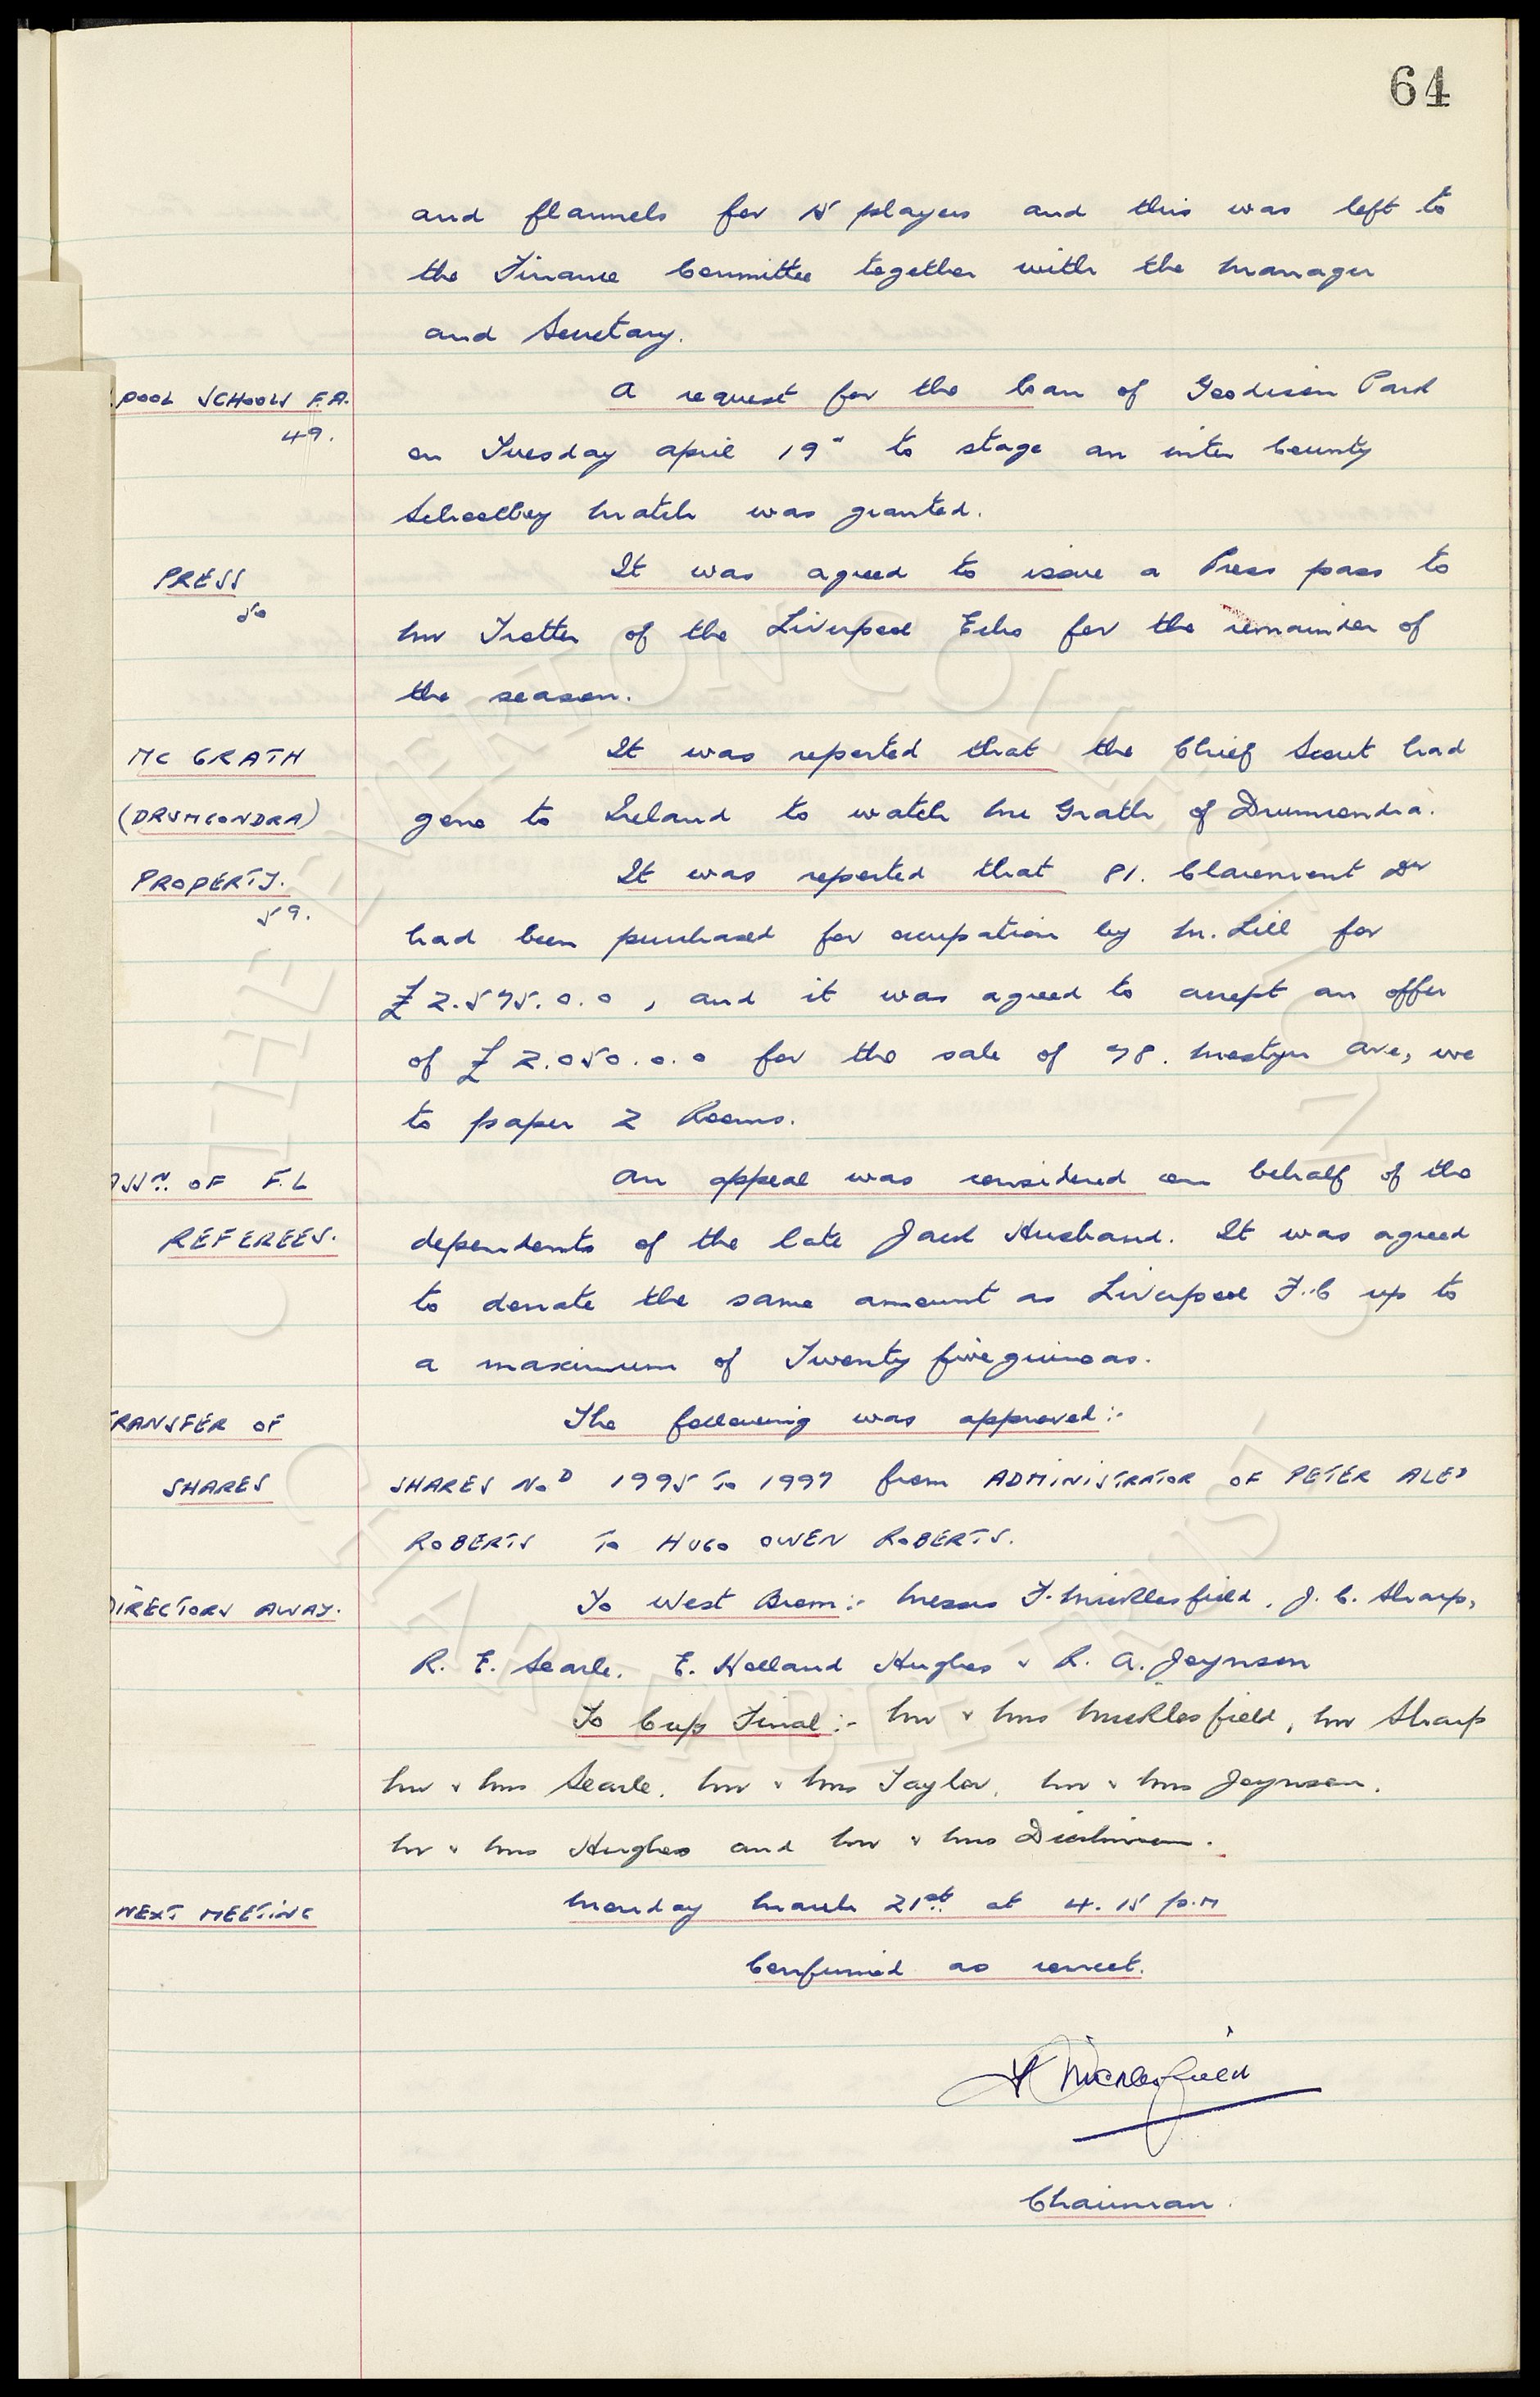 64
and flannels for 15 players and this was left to
the Finance Committee together with the Manager
and Secretary.
POOL SCHOOLS F.A. A request for the loan of Goodison Park
49.
on Tuesday April 19" to stage an inter County
Schoolboy Match was granted.
PRESS It was agreed to issue a Press pass to
50
Mr Trotter of the Liverpool Echo for the remainder of
the season.
MC GRATH It was reported that the Chief Scout had
(DRUMCONDRA) gone to Ireland to watch Mc Grath of Drumcondra.
PROPERTY. It was reported that 81. Claremont Dr
59.
had been purchased for occupation by M. Lill for
£2.575.0.0, and it was agreed to accept an offer
of £2.050.0.0 for the sale of 78. Mostyn Ave, we
to paper 2 Rooms.
ASSN. OF F.L An appeal was considered on behalf of the
REFEREES. dependents of the late Jack Husband. It was agreed
to donate the same amount as Liverpool F.C up to
a maximum of Twenty five guineas.
TRANSFER OF The following was approved:-
SHARES SHARES NoD 1995 To 1997 from ADMINISTRATOR OF PETER ALED
ROBERTS To HUGO OWEN ROBERTS.
DIRECTORS AWAY. To West Brom:- Messrs F. Micklesfield, J. C. Sharp,
R. E. Searle. E. Holland Hughes & R. A. Joynson
To Cup Final:- Mr & Mrs Micklesfield, Mr Sharp
Mr & Mrs Searle. Mr & Mrs Taylor. Mr & Mrs Joynson.
Mr & Mrs Hughes and Mr & Mrs Dickinson.
NEXT MEETING Monday March 21st at 4.15 p.m
Confirmed as correct.
F Micklesfield
Chairman.
THE EVERTON COLLECTION
CHARITABLE TRUST